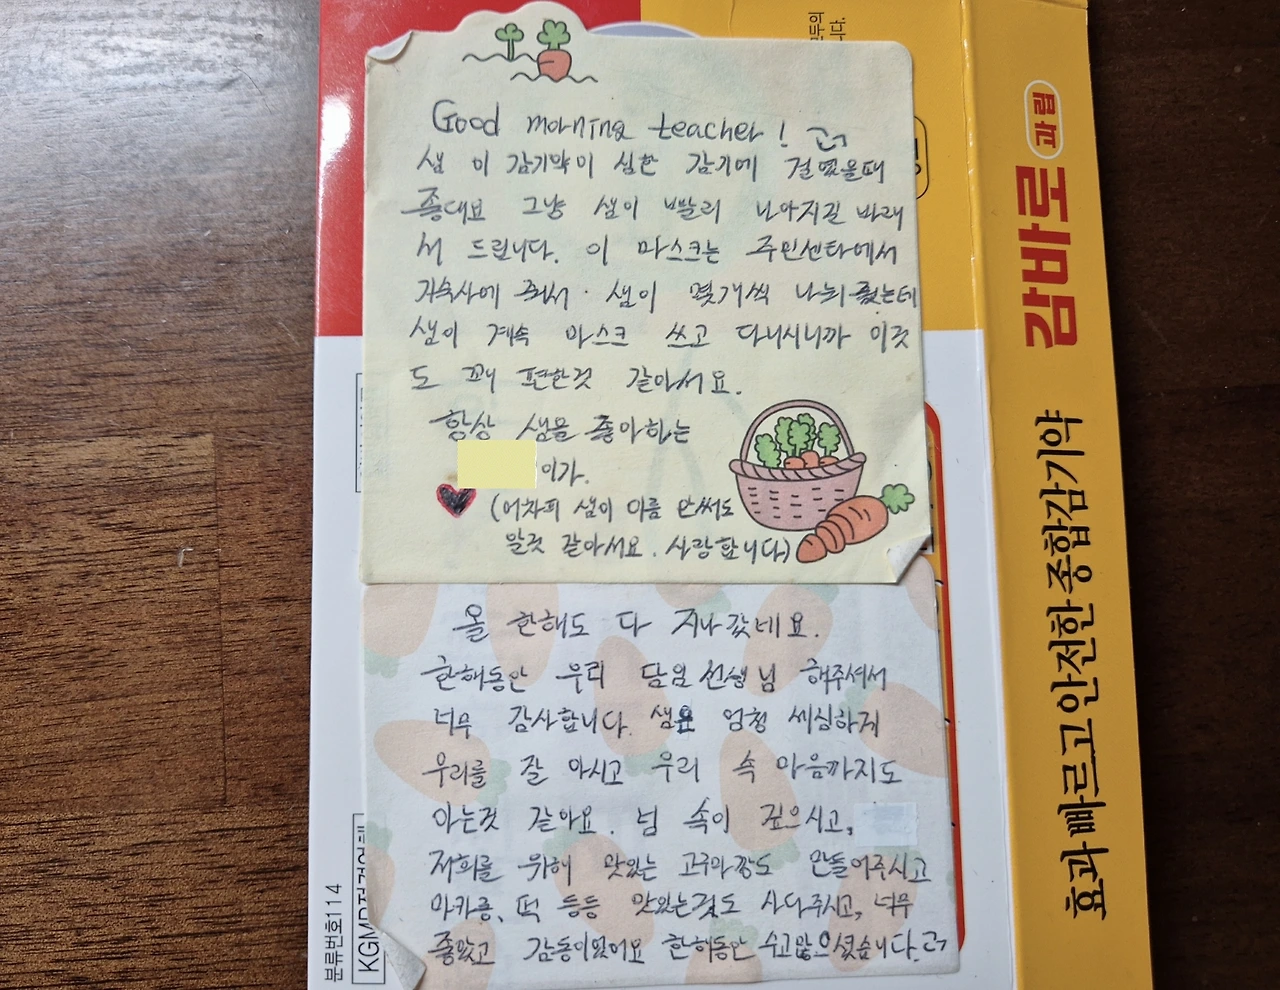 Good morning teacher!
샘 이 감기약이 심한 감기에 걸렸을때
좋대보 그냥 샘이 빨리 나아지길 바래
서 드립니다. 이 마스크는 주민센타에서
기숙사에 줘서. 샘이 몇개씩 나눠줬는데
샘이 계속 마스크 쓰고 다니시니까 이것
도 꽤 편한것 같아서요.
항상 샘을 좋아하는
이가.
(어차피 샘이 이름 안써도
알것 같아서요. 사랑합니다)
올 한해도 다 지나갔네요.
한해동안 우리 담임 선생님 해주셔서
너무 감사합니다. 샘은 엄청 세심하게
우리를 잘 아시고 우리 속 마음까지도
아는것 같아요. 넘 속이 깊으시고,
저희를 위해 맛있는 고구마깡도 만들어주시고
마카롱, 떡 등등 맛있는것도 사다주시고, 너무
좋았고 감동이었어요 한해동안 수고많으셨습니다.
감바로 과립
효과 빠르고 안전한 종합감기약
분류번호114